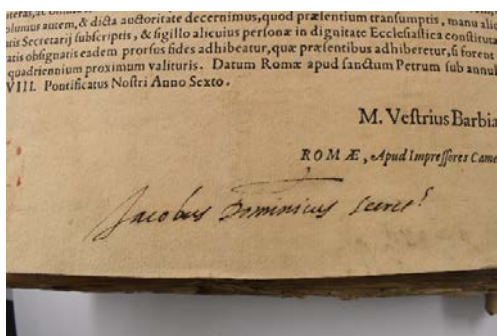 olumus autem, & dicta auctoritate decernimus, quod præſentium tranſumptis, manu alic
Secretarij ſubſcriptis, & ſigillo alicuius perſonæ in dignitate Eccleſiaſtica conſtituta
atis obſignatis eadem prorſus fides adhibeatur, quæ præſentibus adhiberetur, ſi forent
quadriennium proximum valituris. Datum Romæ apud ſanctum Petrum ſub annul
VIII. Pontificatus Noſtri Anno Sexto.
M. Veſtrius Barbia
ROMÆ, Apud Impreſſores Came
Jacobus Dominicus Secret.ˢ